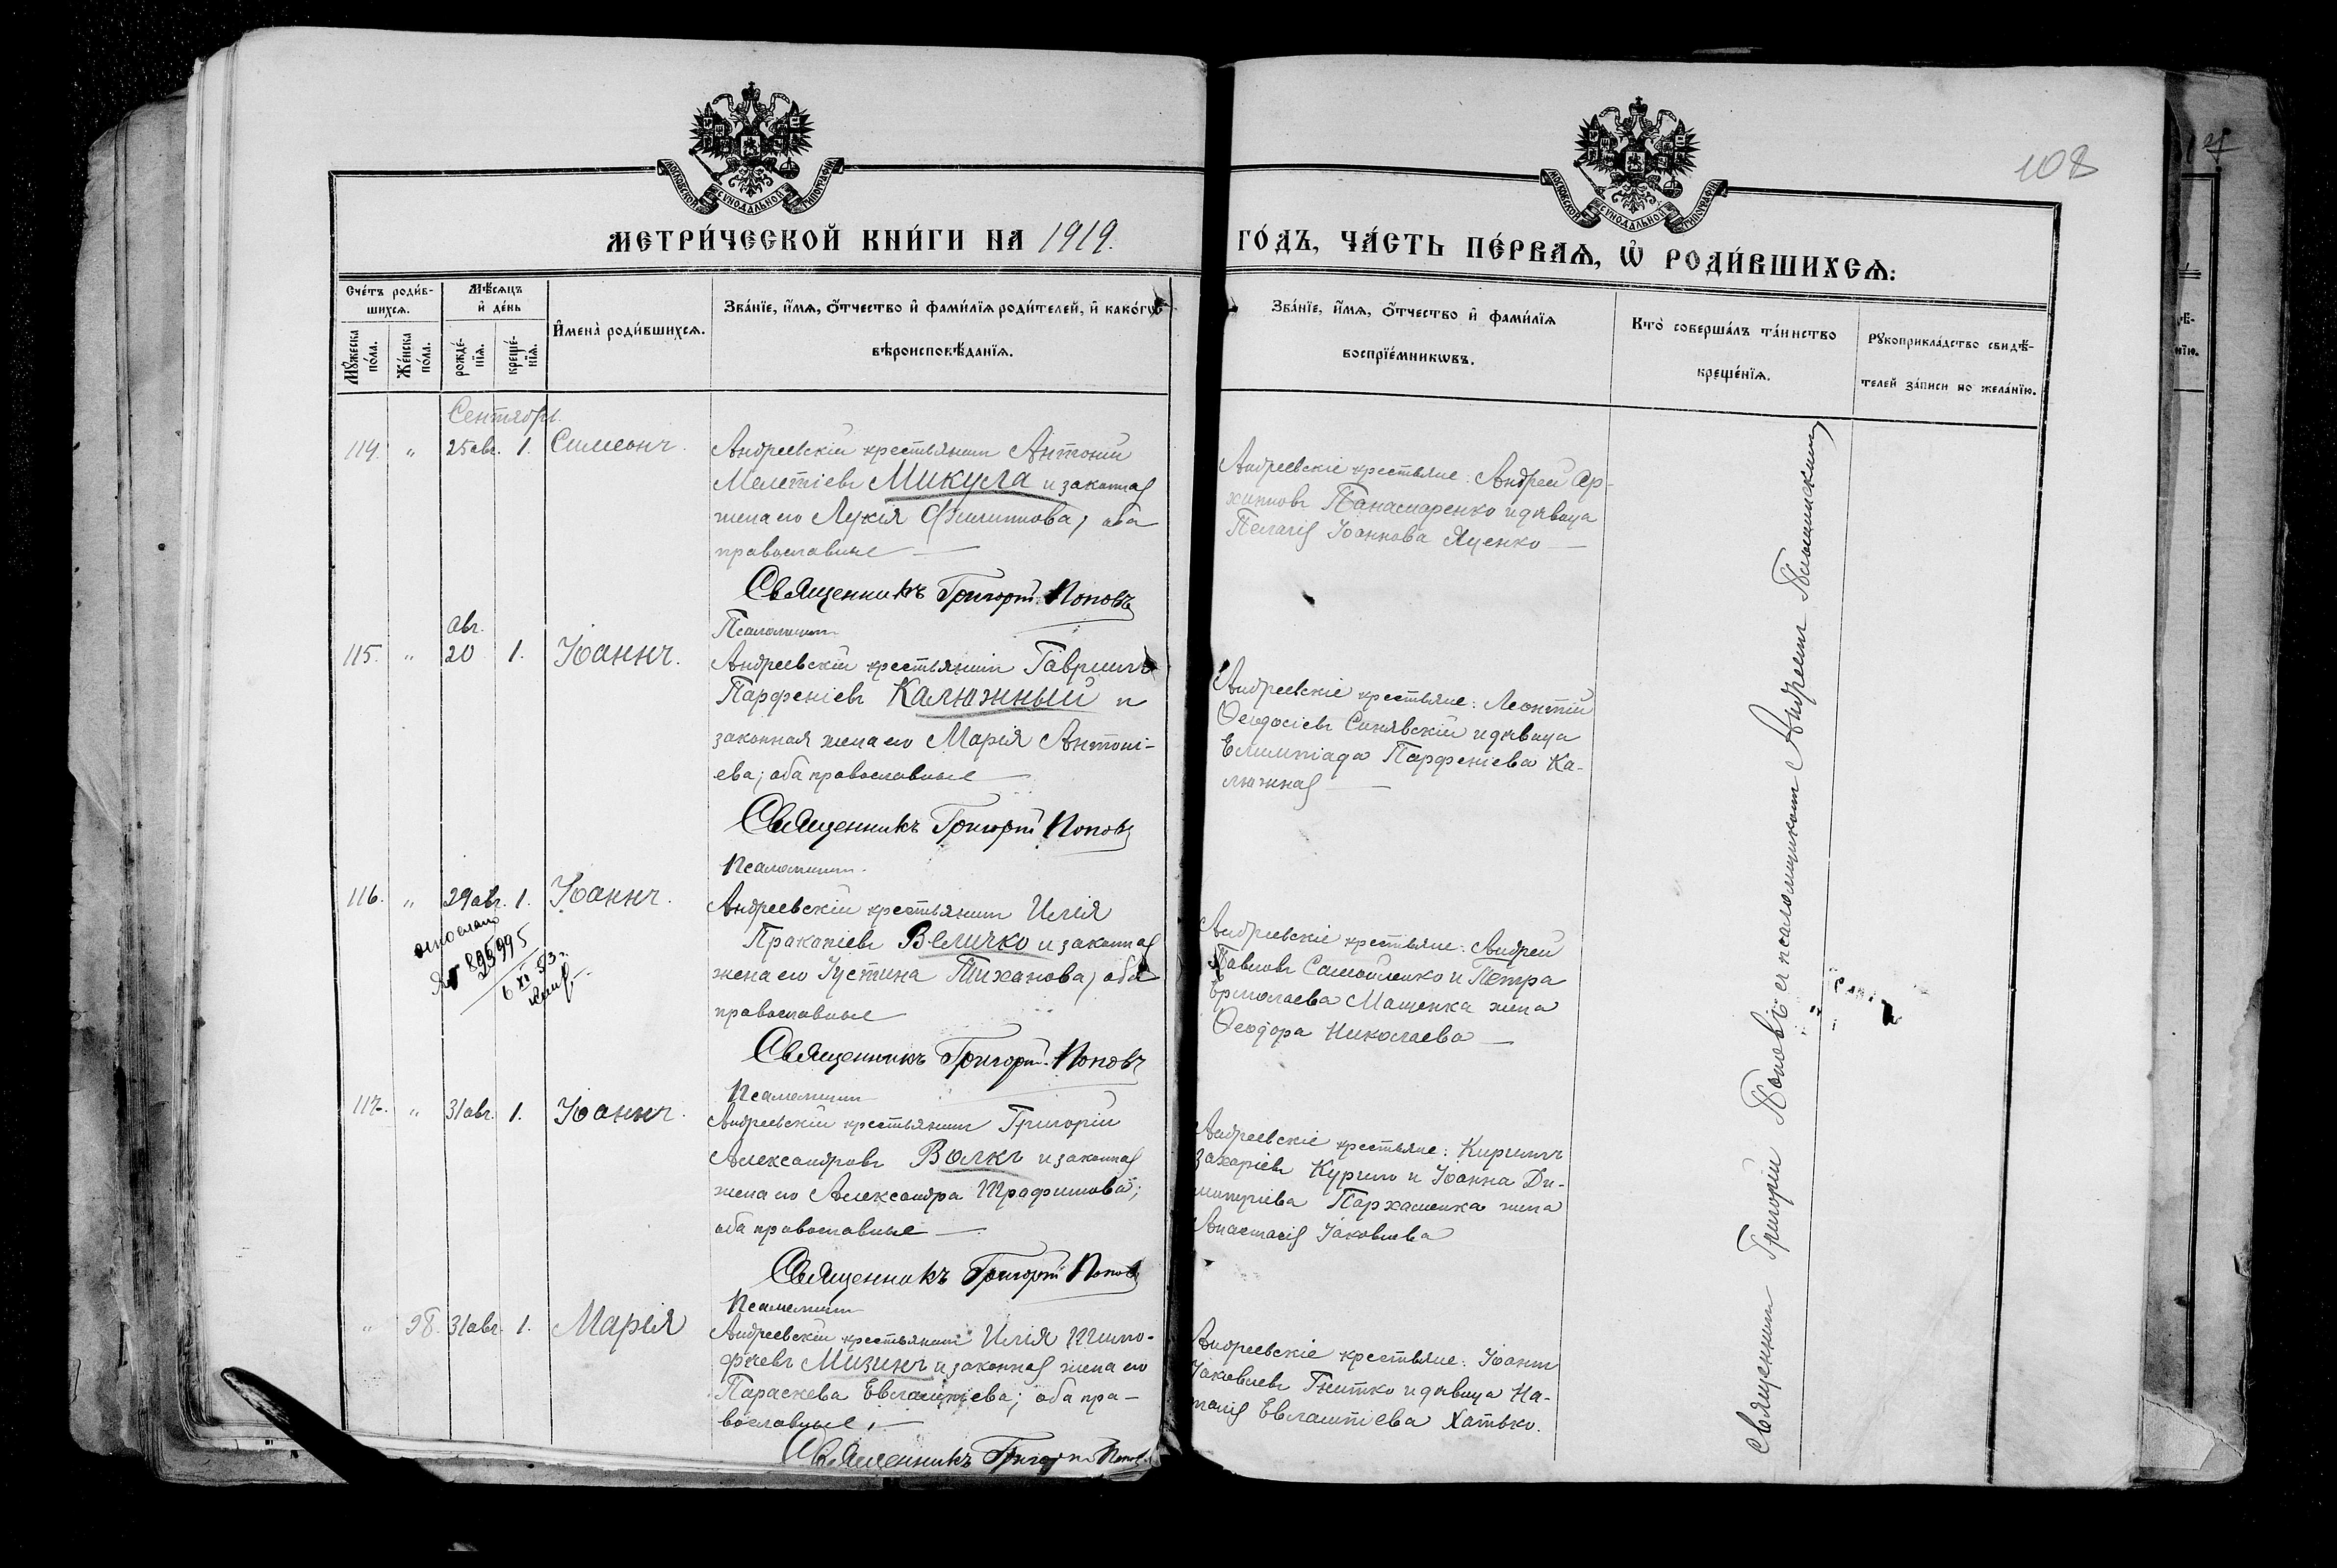 108
МОСКОВСКОЙ СѴНОДАЛЬНОЙ ТИПОГРАФІИ
МОСКОВСКОЙ СѴНОДАЛЬНОЙ ТИПОГРАФІИ
МЕТРИ́ЧЕСКОЙ КНИ́ГИ НА 1919. ГО́ДЪ, ЧА́СТЬ ПЕ́РВАѦ, Ѡ҆ РОДИ́ВШИХСѦ:
Сче́тъ роди́в-
шихсѧ.
Мꙋ́жеска
по́ла.
Же́нска
по́ла.
Мѣ́сѧцъ
и҆ де́нь
рожде́-
нїѧ.
креще́-
нїѧ.
И҆мена̀ роди́вшихсѧ.
Зва́нїе, и҆́мѧ, ѻ҆́тчество и҆ фами́лїѧ роди́телей, и҆ како́гѡ
вѣроисповѣ́данїѧ.
Зва́нїе, и҆́мѧ, ѻ҆́тчество и҆ фами́лїѧ
воспрїе́мникѡвъ.
Кто̀ соверша́лъ та́инство
креще́нїѧ.
Рꙋкоприкла́дство свидѣ́-
телей за́писи по жела́нїю.
Сентябрь.
114. " 25 авг. 1. Симеонъ.
Андреевскій крестьянинъ Антоній
Мелетіевъ Микула и законная
жена его Лукія Филиппова; оба
православные —
Священникъ Григорій Поповъ
Псаломщикъ
Андреевскіе крестьяне: Андрей Ар-
хиповъ Панасаренко и дѣвица
Пелагія Іоаннова Яценко —
115. " авг. 20 1. Іоаннъ.
Андреевскій крестьянинъ Гавріилъ
Парфеніевъ Калюжный и
законная жена его Марія Антоні-
ева; оба православные —
Священникъ Григорій Поповъ
Псаломщикъ.
Андреевскіе крестьяне: Леонтій
Ѳеодосіевъ Синявскій и дѣвица
Елимпіада Парфеніева Ка-
люжная —
116. " 29 авг. 1. Іоаннъ.
6 XI 53 г.
Андреевскій крестьянинъ Илія
Пракапіевъ Величко и законная
жена его Іустина Тиханова; оба
православные
Священникъ Григорій Поповъ
Псаломщикъ
Андреевскіе крестьяне: Андрей
Павловъ Самойленко и Петра
Ермолаева Мащенка жена
Ѳеодора Николаева —
117. " 31 авг. 1. Іоаннъ.
Андреевскій крестьянинъ Григорій
Александровъ Волкъ и законная
жена его Александра Трофимова;
оба православные —
Священникъ Григорій Поповъ
Псаломщикъ
Андреевскіе крестьяне: Кириллъ
Захаріевъ Курило и Іоанна Ди-
митріева Пархаменка жена
Анастасія Іаковлева
" 98. 31 авг. 1. Марія
Андреевскій крестьянинъ Илія Тимо-
феевъ Мизинъ и законная жена его
Параскева Евлампіева; оба пра-
вославные. —
Священникъ Григорій Поповъ
Андреевскіе крестьяне: Іоаннъ
Іаковлевъ Гнитко и дѣвица На-
талія Евлампіева Хатько.
Священникъ Григорій Поповъ съ псаломщикомъ Андреемъ